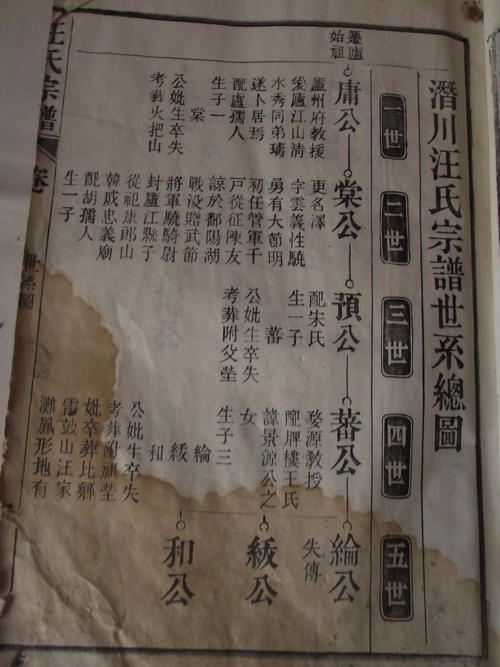 潛川汪氏宗譜世系總圖
一世
二世
三世
四世
五世
遷廬
始祖
庸公
廬州府教授
愛廬江山淸
水秀同弟瑀
遂卜居焉
配盧孺人
生子一
棠
公妣生卒失
考葬火把山
棠公
更名澤
字雲義性驍
勇有大節明
初任管軍千
戸從征陳友
諒於鄱陽湖
戰没贈武節
將軍驍騎尉
封廬江縣子
從祀康郎山
韓成忠義廟
配胡孺人
生一子
預公
配宋氏
生一子
蕃
公妣生卒失
考葬附父塋
蕃公
婺源教授
配牌樓王氏
諱景源公之
女
生子三
綸
級
和
公妣生卒失
考葬附祖塋
妣卒葬比鄉
雷鼓山汪家
灘鳳形地有
綸公
失傳
級公
和公
汪氏宗譜
卷
世系圖